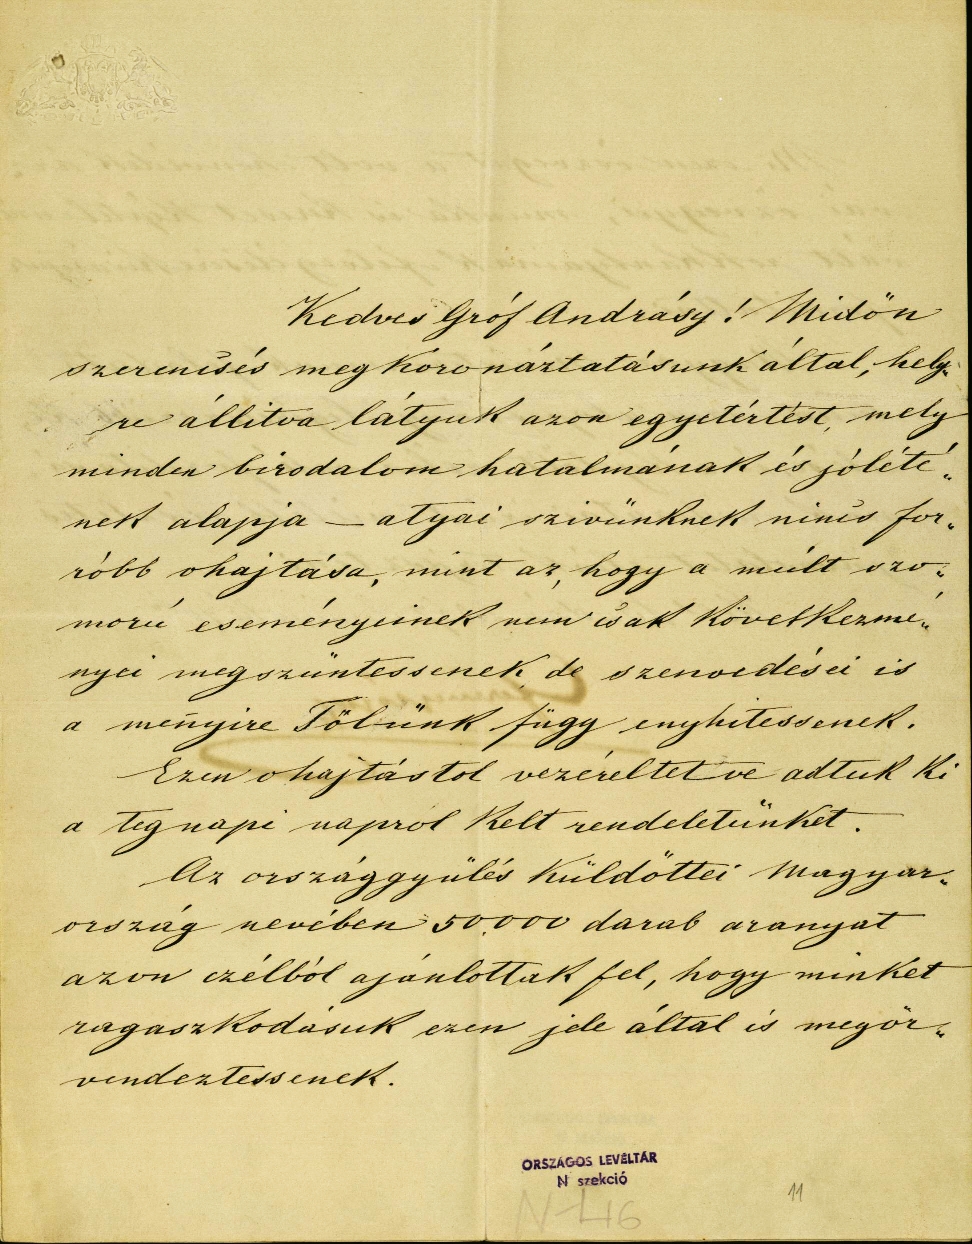 Kedves Gróf Andrásy! Midőn
szerencsés megkoronáztatásunk által, hely-
re állitva látyuk azon egyetértést, mely
minden birodalom hatalmának és jóllété-
nek alapja — atyai szivünknek nincs for-
róbb ohajtása, mint az, hogy a múlt szo-
morú eseményeinek nem csak következmé-
nyei megszüntessenek, de szenvedései is
a menyire Tőlünk függ enyhitessenek.
Ezen ohajtástol vezéreltetve adtuk ki
a tegnapi napról kelt rendeletünket.
Az országgyülés küldöttei Magyar-
ország nevében 50.000 darab aranyat
azon czélból ajánlottak fel, hogy minket
ragaszkodásuk ezen jele által is megör-
vendeztessenek.
ORSZÁGOS LEVÉLTÁR
N szekció
N 416
11